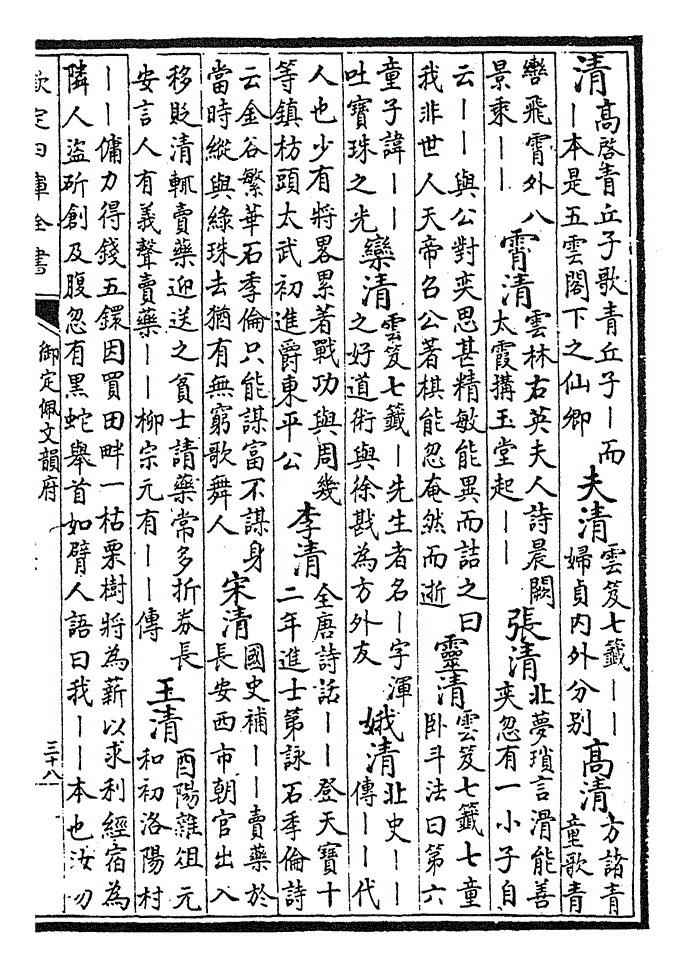 清高啓青丘子歌青丘子—而—本是五雲閣下之仙卿夫清雲笈七籤——婦貞内外分别高清方諸青童歌青
轡飛霄外八景乘——霄清雲林右英夫人詩晨闕太霞搆玉堂起——張清北夢瑣言滑能善奕忽有一小子自
云——與公對奕思甚精敏能異而詰之曰我非世人天帝召公著棋能忍奄然而逝靈清雲笈七籤七童卧斗法曰第六
童子諱——吐寳珠之光欒清雲笈七籤—先生者名—字渾之好道術與徐戡為方外友娥清北史——傳——代
人也少有將畧累著戰功與周幾等鎮枋頭太武初進爵東平公李清全唐詩話——登天寳十二年進士第詠石季倫詩
云金谷繁華石季倫只能謀富不謀身當時縱與綠珠去猶有無窮歌舞人宋清國史補——賣藥於長安西市朝官出入
移貶清輒賣藥迎送之貧士請藥常多折劵長安言人有義聲賣藥——柳宗元有——傳王清酉陽雜俎元和初洛陽村
——傭力得錢五鐶因買田畔一枯栗樹將為薪以求利經宿為隣人盜斫創及腹忽有黑蛇舉首如臂人語曰我——本也汝勿
欽定四庫全書
御定佩文韻府
三十八